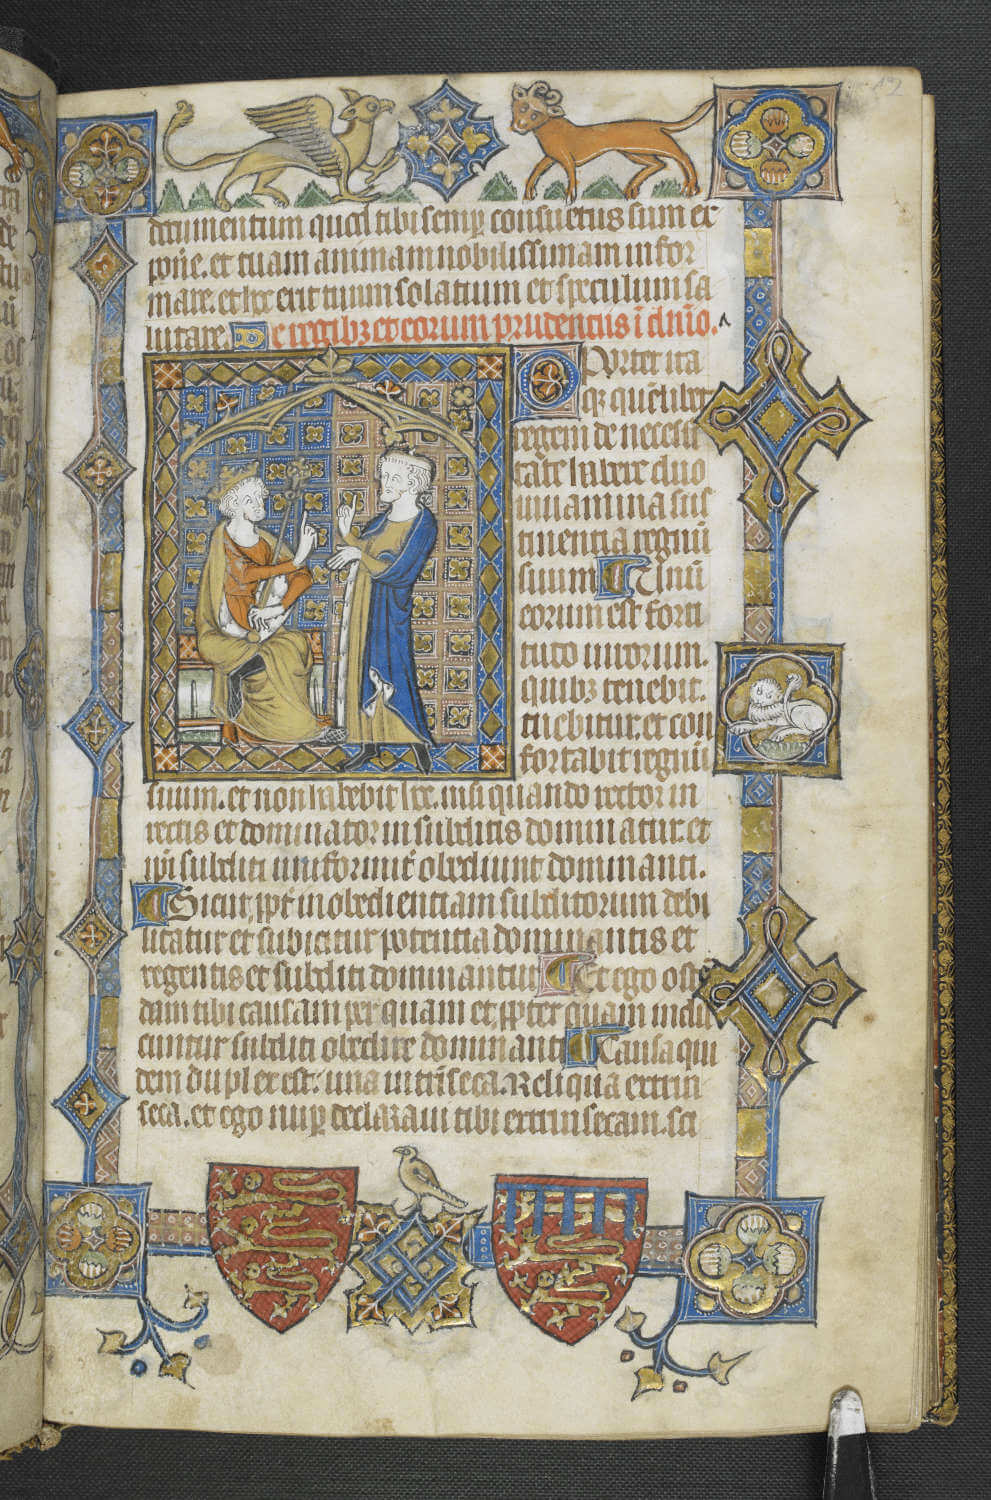 dcumentum quod tibi semꝑ consuetus sum ex
pōne. et tuam animam nobilissimam infor
mare. et hec erit tuum solatium et speculum sa
lutare. De regibꝫ et eorum prudenciis ī dn̄io.
Oportet ita
qꝫ quēlibet
regem de necessi
tate habere duo
iuuamina sus
tinentia regnū
suum Vnū
eorum est forti
tudo uirorum.
quibꝫ tenebit.
tuebitur. et con
fortabit regnū
suum. et non habebit hec. nisi quando rector in
rectis et dominator in subditis dominatur. et
ip̄i subditi uniformit̄ obediunt dominanti.
Sicut ꝓpt̄ inobedientiam subditorum debi
litatur et subicitur potentia dominantis et
regentis et subditi dominantur Et ego ostē
dam tibi causam per quam et ꝓpter quam indu
cuntur subditi obedire dominanti Causa qui
dem duplex est. una intrīseca. Reliqua extrin
seca. et ego nuꝑ declaraui tibi extrinsecam. sci